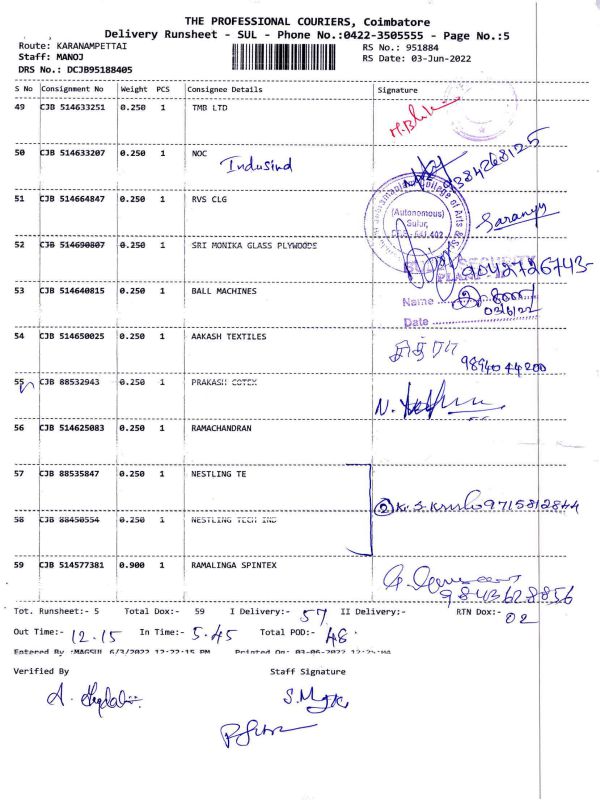 THE PROFESSIONAL COURIERS, Coimbatore
Delivery Runsheet - SUL - Phone No.:0422-3505555 - Page No.:5
Route: KARANAMPETTAI
RS No.: 951884
Staff: MANOJ
RS Date: 03-Jun-2022
DRS No.: DCJB95188405
S No Consignment No Weight PCS Consignee Details Signature
49 CJB 514633251 0.250 1 TMB LTD
50 CJB 514633207 0.250 1 NOC
Indusind
9384268125
51 CJB 514664847 0.250 1 RVS CLG
(Autonomous)
Sulur,
Saranya
52 CJB 514690807 0.250 1 SRI MONIKA GLASS PLYWOODS
9042726743-
53 CJB 514640815 0.250 1 BALL MACHINES
Name
03/6/22
Date
54 CJB 514650025 0.250 1 AAKASH TEXTILES
9894044200
55 CJB 88532943 0.250 1 PRAKASH COTEX
56 CJB 514625083 0.250 1 RAMACHANDRAN
57 CJB 88535847 0.250 1 NESTLING TE
② 9715812844
58 CJB 88450554 0.250 1 NESTLING TECH IND
59 CJB 514577381 0.900 1 RAMALINGA SPINTEX
9843628856
Tot. Runsheet:- 5 Total Dox:- 59 I Delivery:- 57 II Delivery:- RTN Dox:- 02
Out Time:- 12.15 In Time:- 5.45 Total POD:- 48
Entered By :MAGSUL 6/3/2022 12:22:15 PM Printed On: 03-06-2022
Verified By Staff Signature